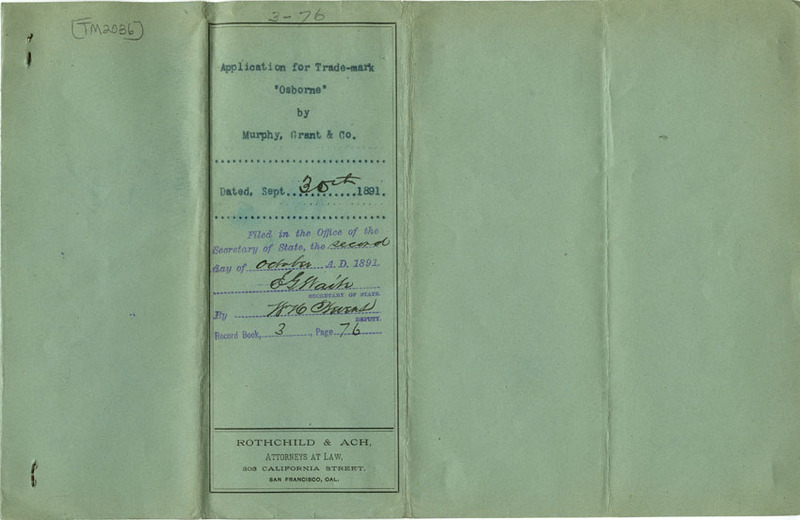 [TM2036]
3-76
Application for Trade-mark
"Osborne"
by
Murphy, Grant & Co.
Dated, Sept. 30th 1891.
Filed in the Office of the
Secretary of State, the second
day of October A. D. 1891
E G Waite
SECRETARY OF STATE.
By W H
DEPUTY.
Record Book, 3, Page 76
ROTHCHILD & ACH,
ATTORNEYS AT LAW,
303 CALIFORNIA STREET,
SAN FRANCISCO, CAL.